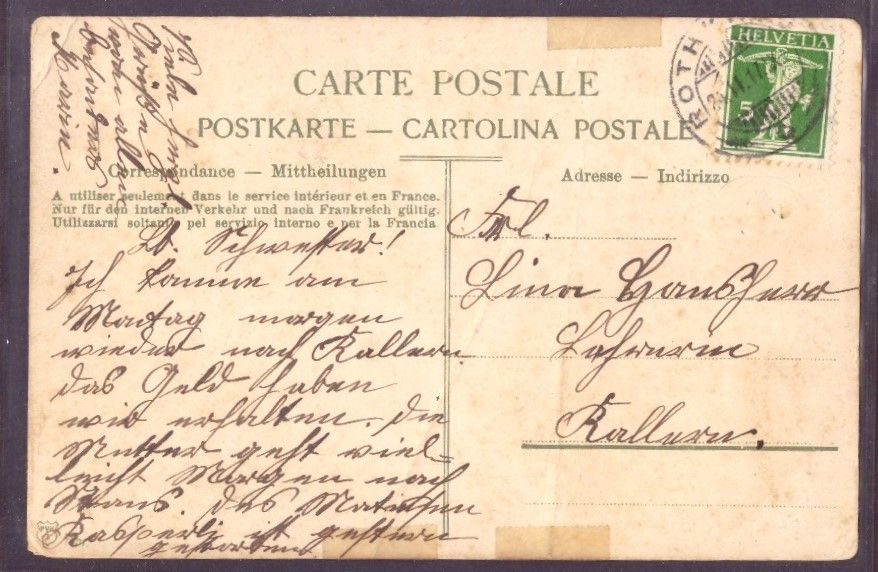 CARTE POSTALE
POSTKARTE — CARTOLINA POSTALE
HELVETIA
5
ROTH
Correspondance — Mittheilungen
A utiliser seulement dans le service intérieur et en France.
Nur für den internen Verkehr und nach Frankreich gültig.
Utilizzarsi soltanto pel servizio interno e per la Francia
Adresse — Indirizzo
Viele herzl.
Grüsse
von allen
Marie.
Lb. Schwester!
Ich komme am
Montag morgen
wieder nach Kallern
das Geld haben
wir erhalten. Die
Mutter geht viel=
leicht Morgen nach
Stans. Des
Kasperli ist gestern
gestorben
Frl.
Lina Hausherr
Lehrerin
Kallern.